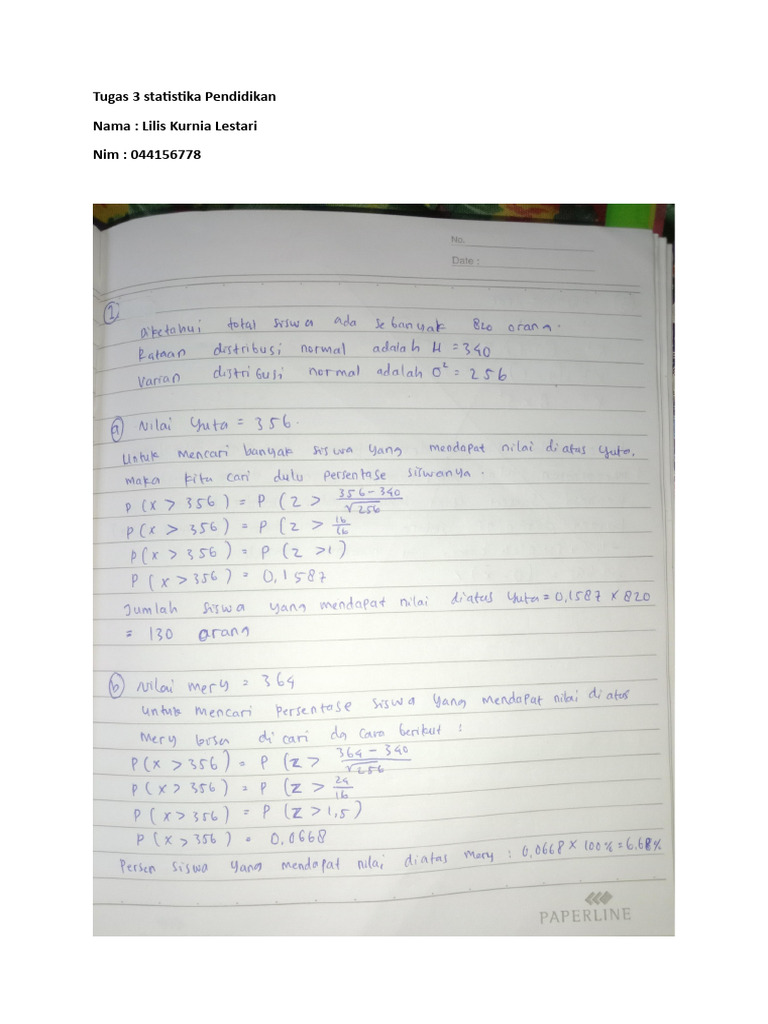 Tugas 3 statistika Pendidikan
Nama : Lilis Kurnia Lestari
Nim : 044156778
No.
Date :
1
diketahui total siswa ada sebanyak 820 orang.
Rataan distribusi normal adalah μ = 340
Varian distribusi normal adalah σ² = 256
a) Nilai Yuta = 356.
Untuk mencari banyak siswa yang mendapat nilai diatas Yuta,
maka kita cari dulu persentase siswanya.
P (x > 356) = P (z > (356-340)/√256
P (x > 356) = P (z > 16/16
P (x > 356) = P (z >1)
P (x > 356) = 0,1587
Jumlah siswa yang mendapat nilai diatas Yuta = 0,1587 x 820
= 130 orang
b) Nilai mery = 364
untuk mencari persentase siswa yang mendapat nilai diatas
Mery bisa di cari dg cara berikut :
P (x > 356) = P (z > (364-340)/√256
P (x > 356) = P (z > 24/16
P (x > 356) = P (z > 1,5)
P (x > 356) = 0,0668
Persen siswa yang mendapat nilai diatas mery : 0,0668 x 100% = 6.68%
PAPERLINE